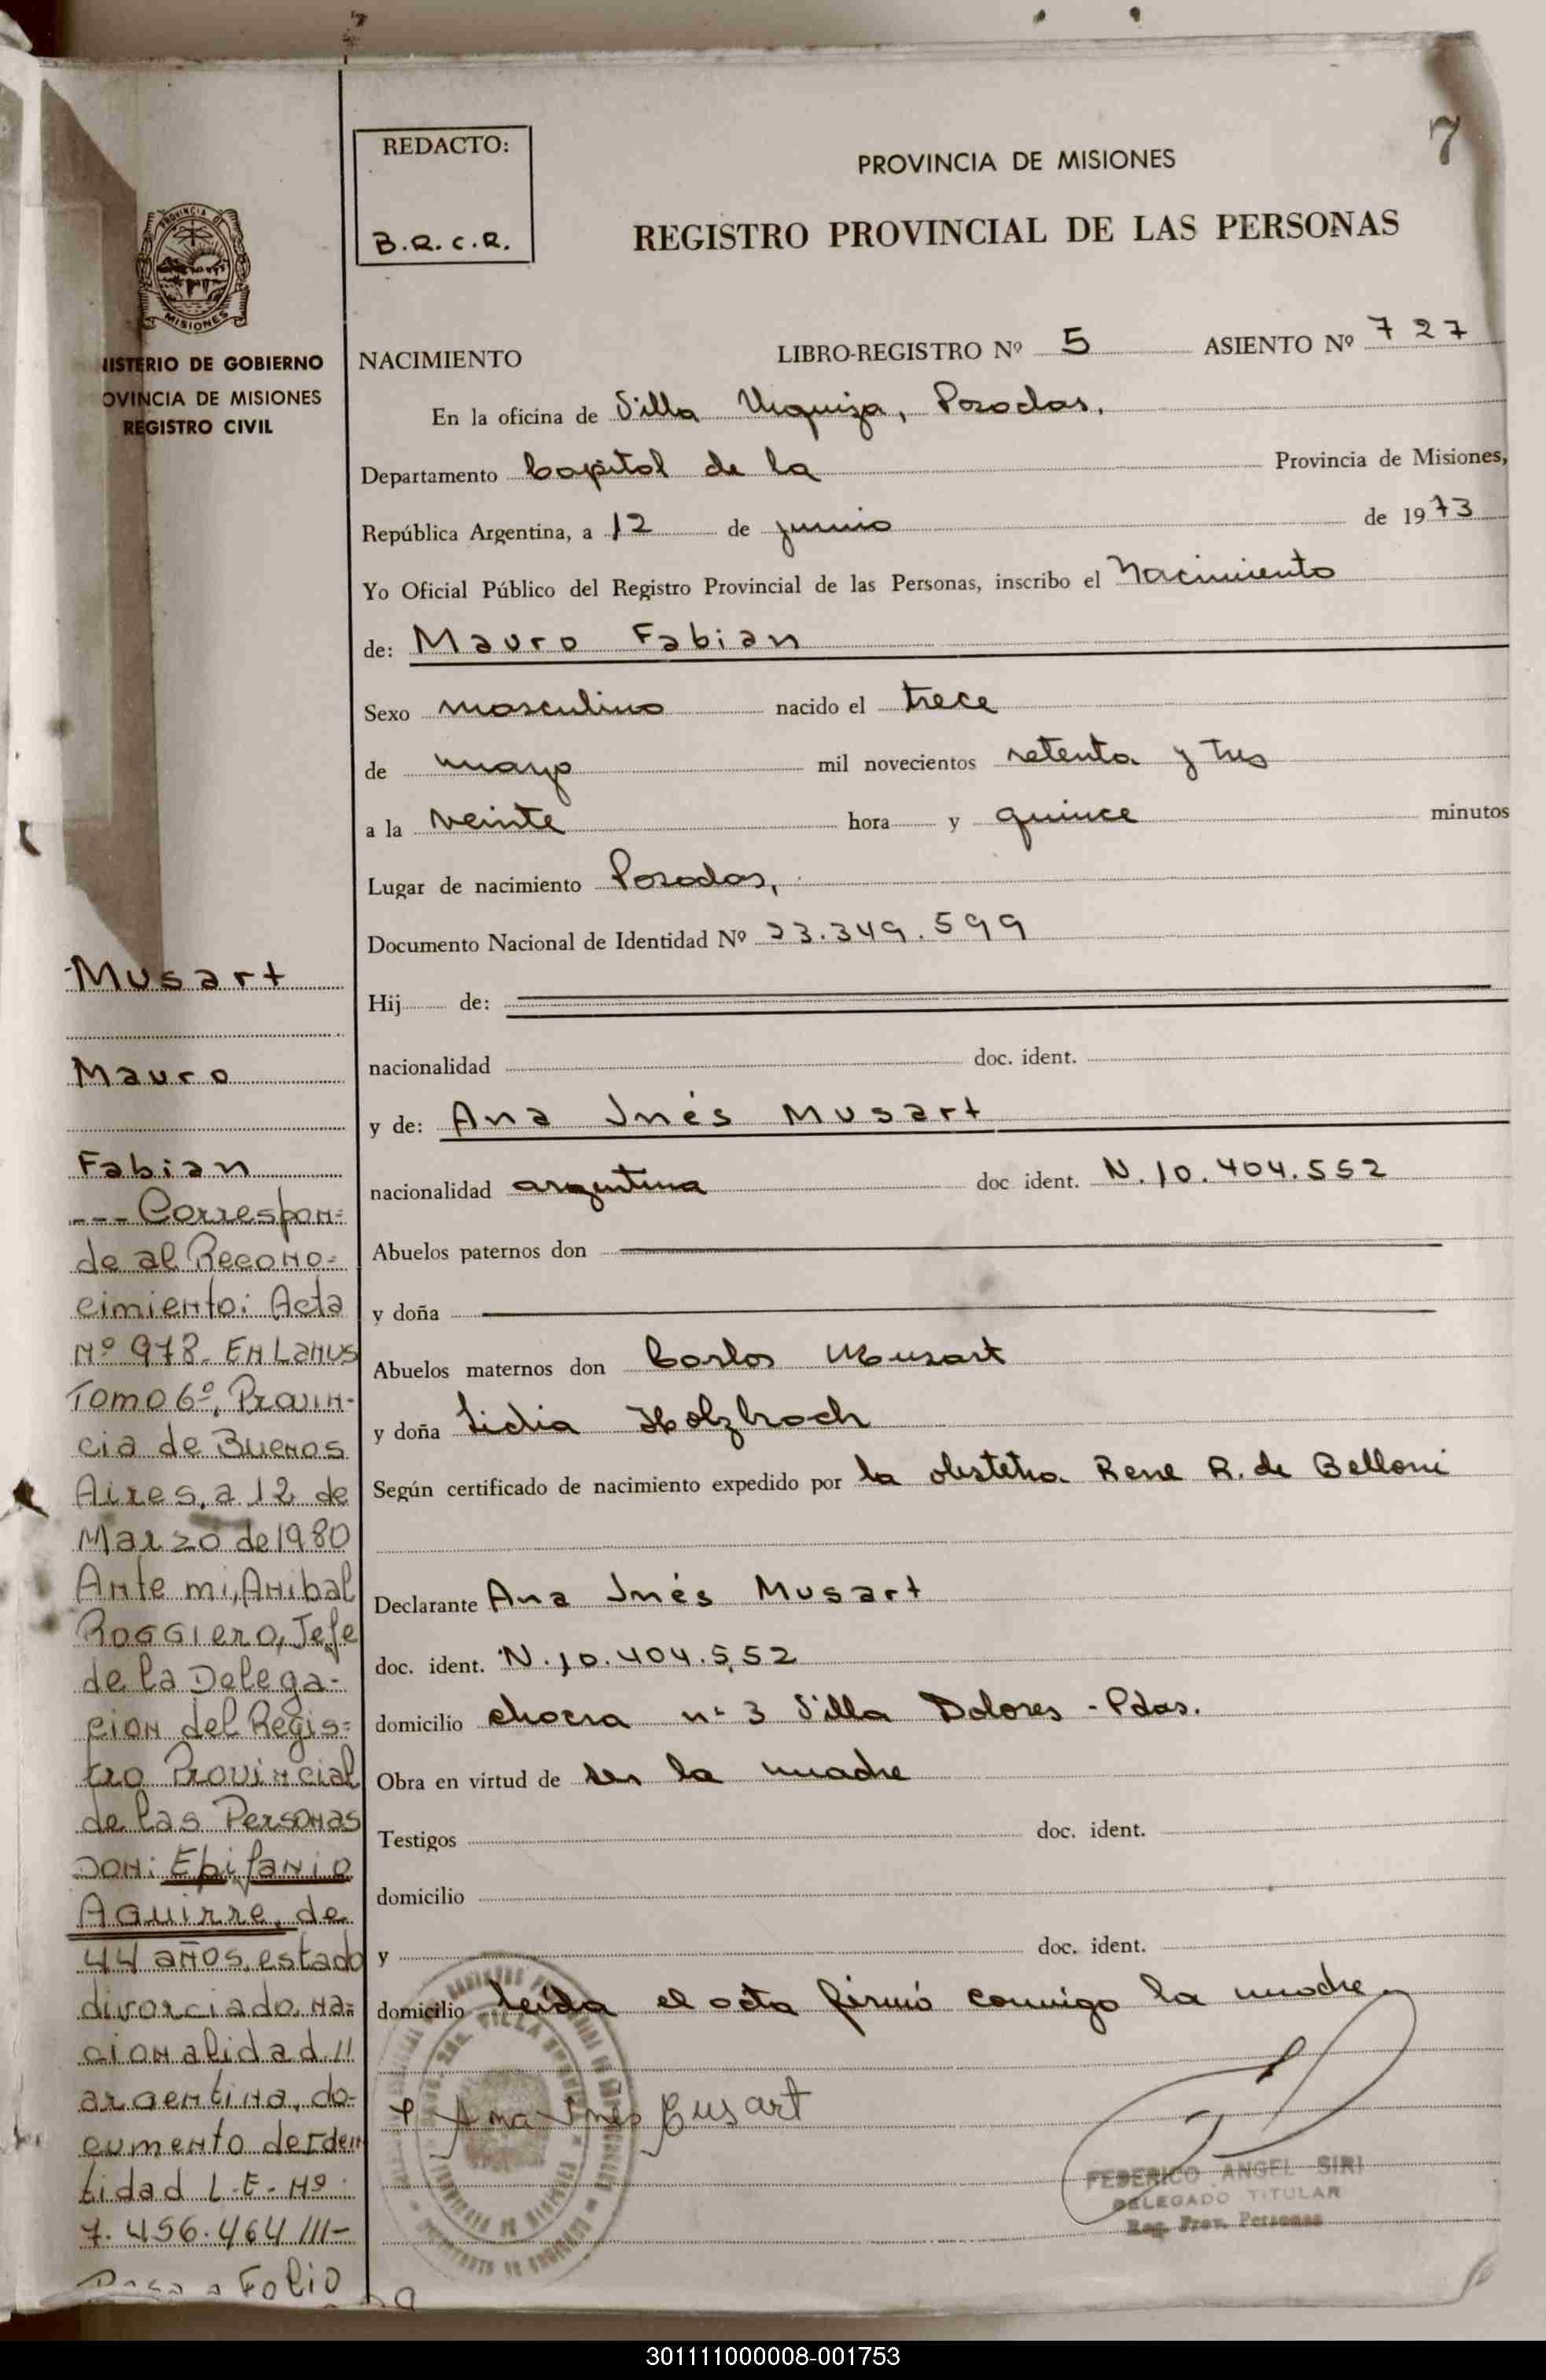 7
REDACTO:
B.R.C.R.
PROVINCIA DE MISIONES
REGISTRO PROVINCIAL DE LAS PERSONAS
PROVINCIA DE
MISIONES
NISTERIO DE GOBIERNO
OVINCIA DE MISIONES
REGISTRO CIVIL
NACIMIENTO LIBRO-REGISTRO Nº 5 ASIENTO Nº 727
En la oficina de Villa Urquiza, Posadas,
Departamento Capital de la Provincia de Misiones,
República Argentina, a 12 de junio de 1973
Yo Oficial Público del Registro Provincial de las Personas, inscribo el Nacimiento
de: Mauro Fabian
Sexo masculino nacido el trece
de mayo mil novecientos setenta y tres
a la veinte hora y quince minutos
Lugar de nacimiento Posadas,
Documento Nacional de Identidad Nº 23.349.599
Hij de:
nacionalidad doc. ident.
y de: Ana Inés Musart
nacionalidad argentina doc ident. N.10.404.552
Abuelos paternos don
y doña
Abuelos maternos don Carlos Musart
y doña Lidia Holzbach
Según certificado de nacimiento expedido por la obstetra Rene R. de Belloni
Declarante Ana Inés Musart
doc. ident. N.10.404.552
domicilio chacra nº 3 Villa Dolores - Pdas.
Obra en virtud de ser la madre
Testigos doc. ident.
domicilio
y doc. ident.
domicilio leída el acta firmó conmigo la madre.
Ana Inés Musart
FEDERICO ANGEL SIRI
DELEGADO TITULAR
Reg. Prov. Personas
Musart
Mauro
Fabian
--- Correspon=
de al Recono=
cimiento: Acta
Nº 978. En Lanus
Tomo 6º, Provin-
cia de Buenos
Aires, a 12 de
Marzo de 1980
Ante mi, Anibal
Roggiero, Jefe
de la Delega=
cion del Regis=
tro Provincial
de las Personas
Don: Epifanio
Aguirre, de
44 años, estado
divorciado, na=
cionalidad //
argentina, do-
cumento de Iden
tidad L.E. Nº
7.456.464 ///-
Pasa a Folio
301111000008-001753